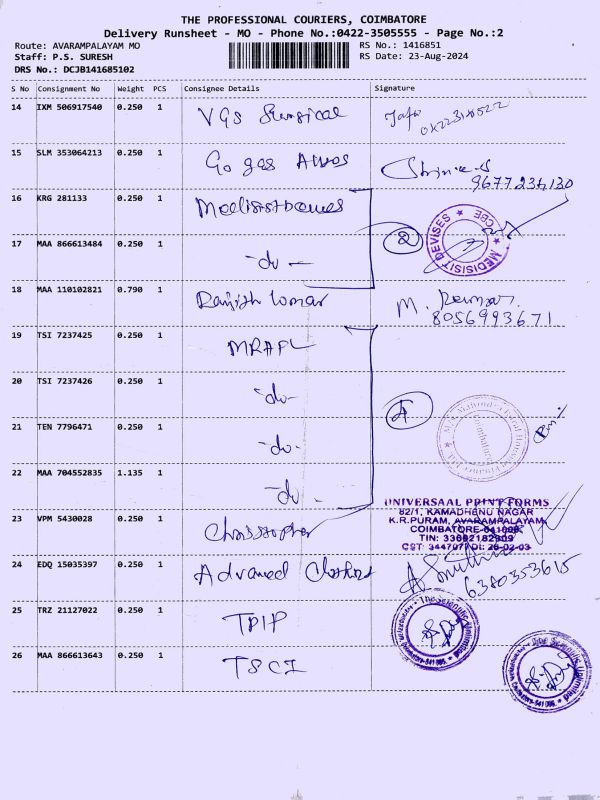 THE PROFESSIONAL COURIERS, COIMBATORE
Delivery Runsheet - MO - Phone No.:0422-3505555 - Page No.:2
Route: AVARAMPALAYAM MO
RS No.: 1416851
Staff: P.S. SURESH
RS Date: 23-Aug-2024
DRS No.: DCJB141685102
S No Consignment No Weight PCS Consignee Details Signature
14 IXM 506917540 0.250 1 VGS Surgical
15 SLM 353064213 0.250 1 Go gas
9677234130
16 KRG 281133 0.250 1
2
MEDISIST DEVISES ★ CBE ★
17 MAA 866613484 0.250 1 -do-
18 MAA 110102821 0.790 1 Ranjith Kumar M. Kumar
8056993671
19 TSI 7237425 0.250 1 MRAPL
20 TSI 7237426 0.250 1 -do-
4
21 TEN 7796471 0.250 1 -do-
22 MAA 704552835 1.135 1 -do-
UNIVERSAAL PRINT FORMS
82/1, KAMADHENU NAGAR
K.R.PURAM, AVARAMPALAYAM
COIMBATORE-641006.
23 VPM 5430028 0.250 1 Christopher
24 EDQ 15035397 0.250 1 Advanced
6380353615
25 TRZ 21127022 0.250 1 TPIP
The Scientific Unlimited
26 MAA 866613643 0.250 1 TSCI
The Scientific Unlimited